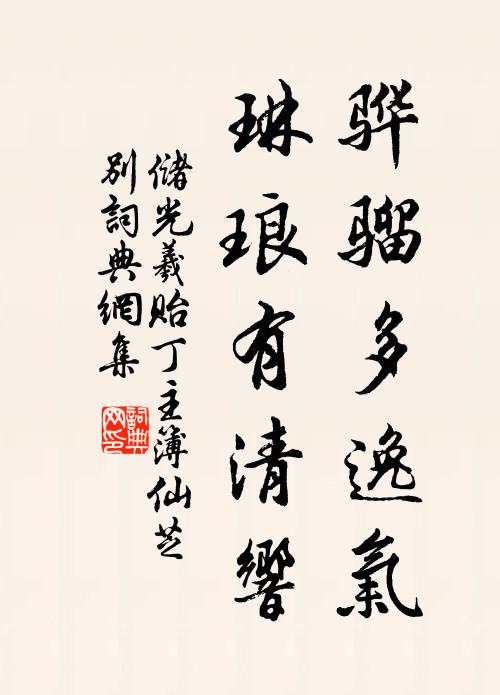 骅骝多逸氣
琳琅有清響
儲光羲貽丁主簿仙芝
別詞典網集
詞典网印